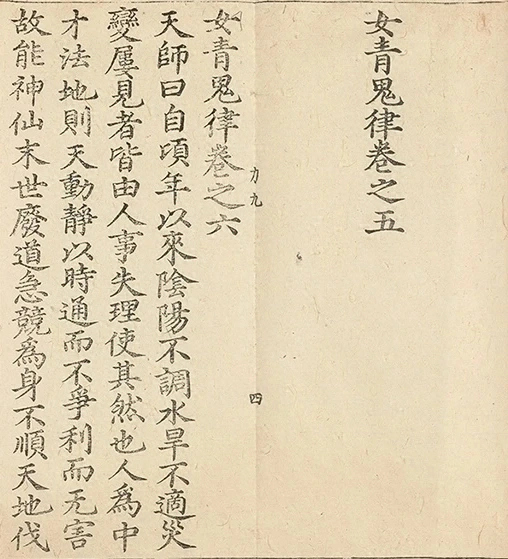 女青鬼律卷之五
力九
四
女青鬼律卷之六
天師曰自頃年以來陰陽不調水旱不適災
變屢見者皆由人事失理使其然也人爲中
才法地則天動靜以時通而不爭利而无害
故能神仙末世廢道急競爲身不順天地伐